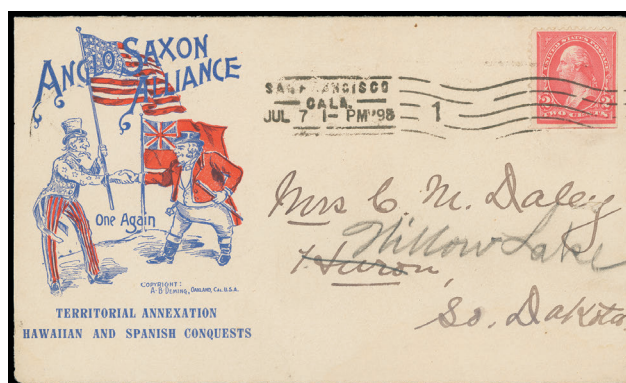 ANGLO SAXON
ALLIANCE
One Again
COPYRIGHT:
A·B·DEMING, OAKLAND, CAL. U.S.A.
TERRITORIAL ANNEXATION
HAWAIIAN AND SPANISH CONQUESTS
SAN FRANCISCO
CALA.
JUL 7 1- PM '98
1
2 2
TWO CENTS
Mrs C M. Daley
Willow Lake
Huron,
So. Dakota